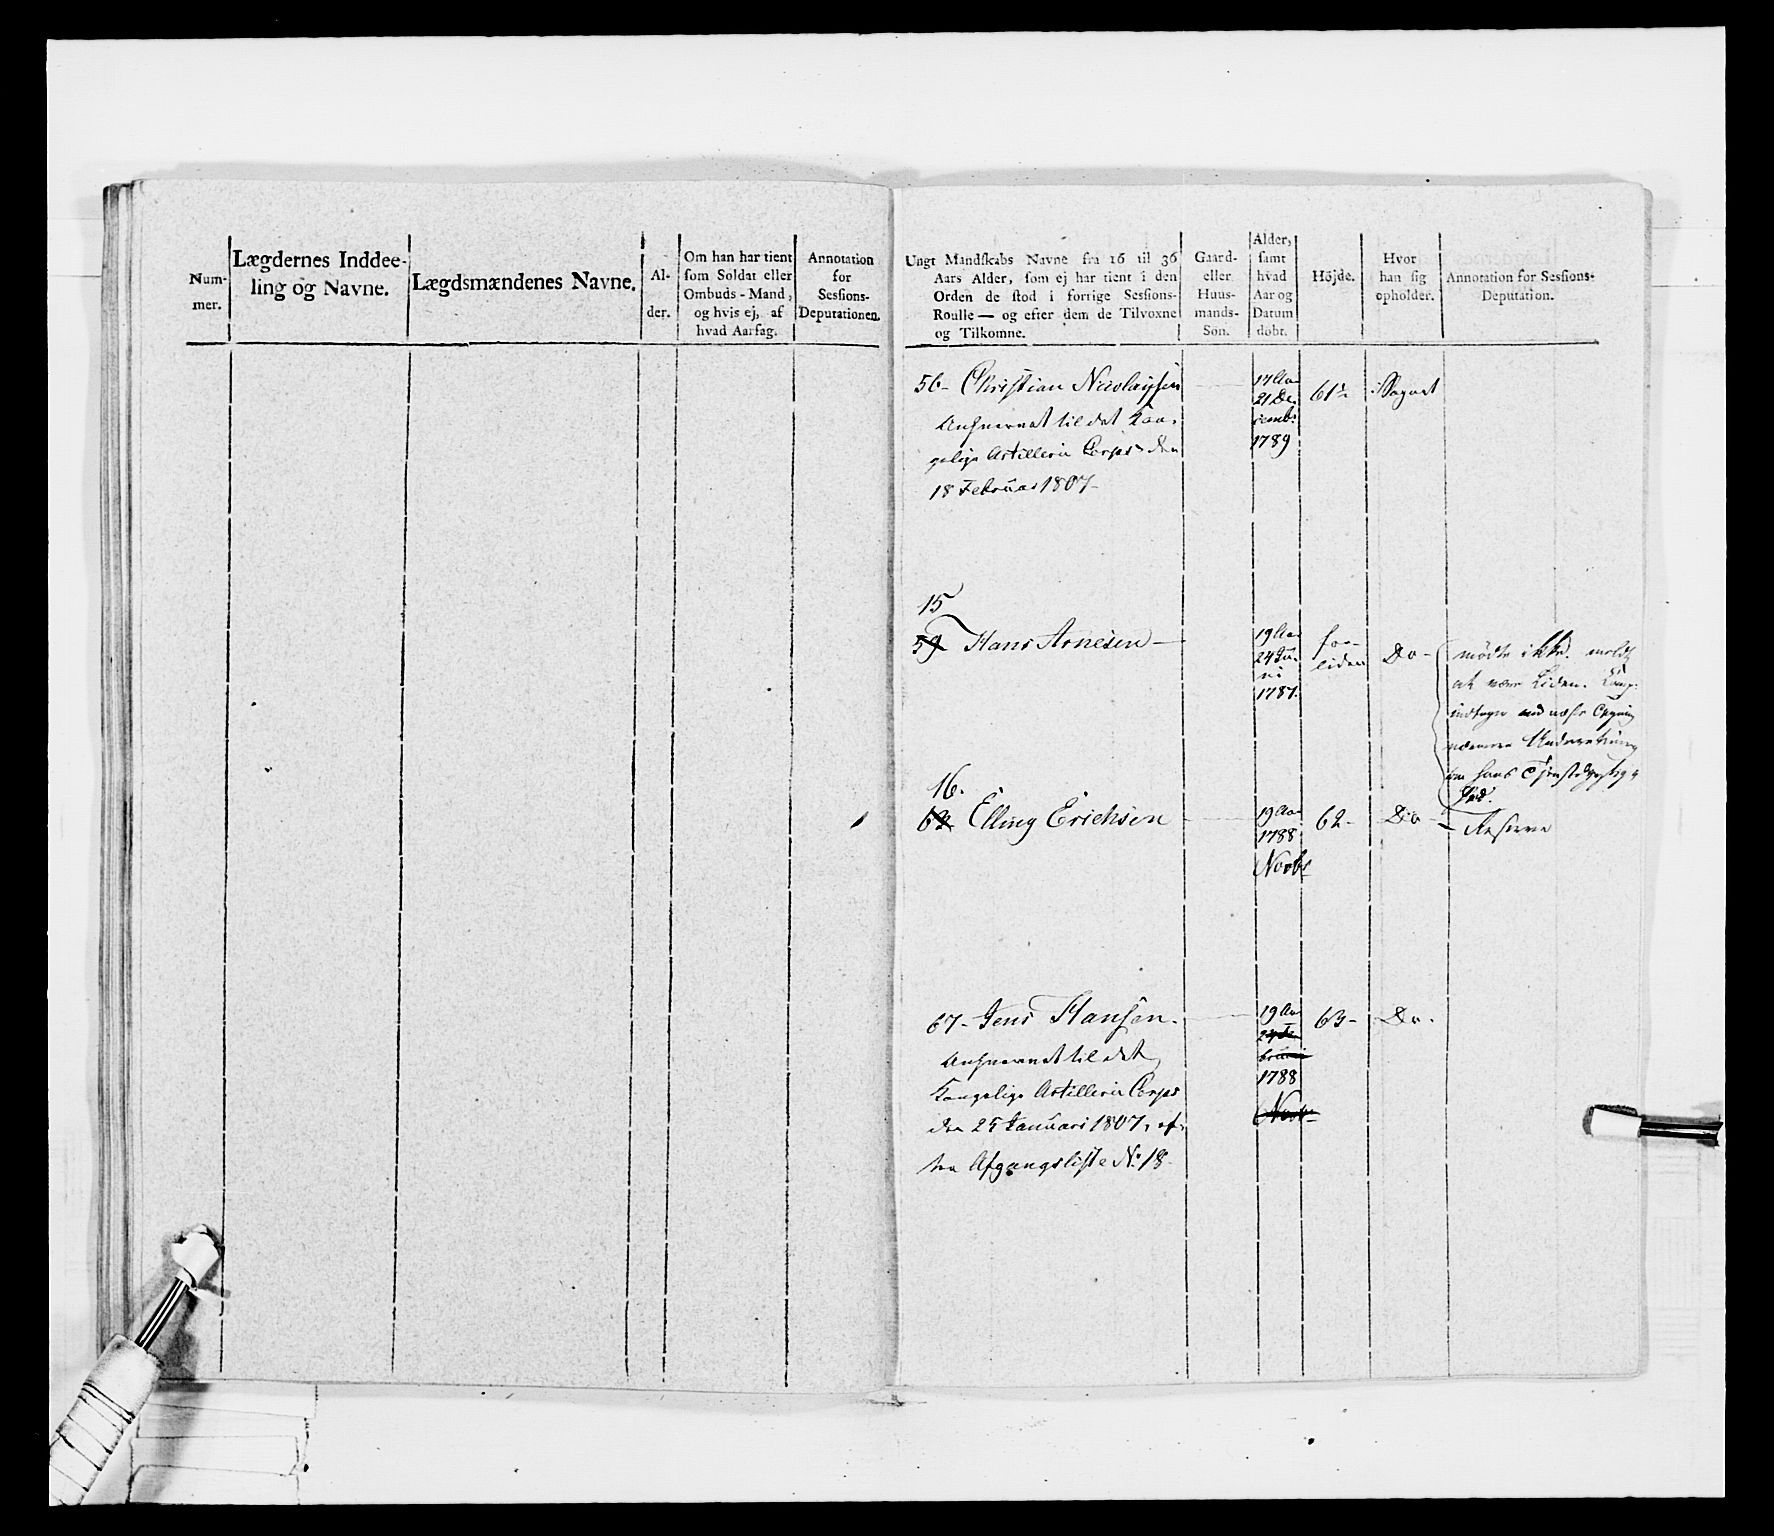 Num-
mer.
Lægdernes Inddee-
ling og Navne.
Lægdsmændenes Navne.
Al-
der.
Om han har tient
som Soldat eller
Ombuds-Mand,
og hvis ej, af
hvad Aarsag.
Annotation
for
Sessions-
Deputationen.
Ungt Mandskabs Navne fra 16 til 36
Aars Alder, som ej har tient i den
Orden de stod i forrige Sessions-
Roulle — og efter dem de Tilvoxne
og Tilkomne.
Gaard-
eller
Huus-
mands-
Søn.
Alder,
samt
hvad
Aar og
Datum
døbt.
Højde.
Hvor
han sig
opholder.
Annotation for Sessions-
Deputation.
56- Christian Nicolaysen
17 Aar
21 De-
cembr:
1789
61½
til det Kon-
gelige Artillerie Corps den
18 Februar 1807-
15
59 Hans Arnesen —
19 Aar
24 Ju-
ni
1787.
for
liden
Do -
mødte ikke. meldt
at være Liden.
ved næste
nærmere Underretning
om hans
16.
62 Elling Erichsen
19 Aar
1788
Novbr
62-
Do -
Reserve
67- Jens Hansen.
19 Aar
1788
63-
Do.
til det
Kongelige Artillerie Corps
den 25 Januari 1807, ef-
ter Afgangsliste No. 18.